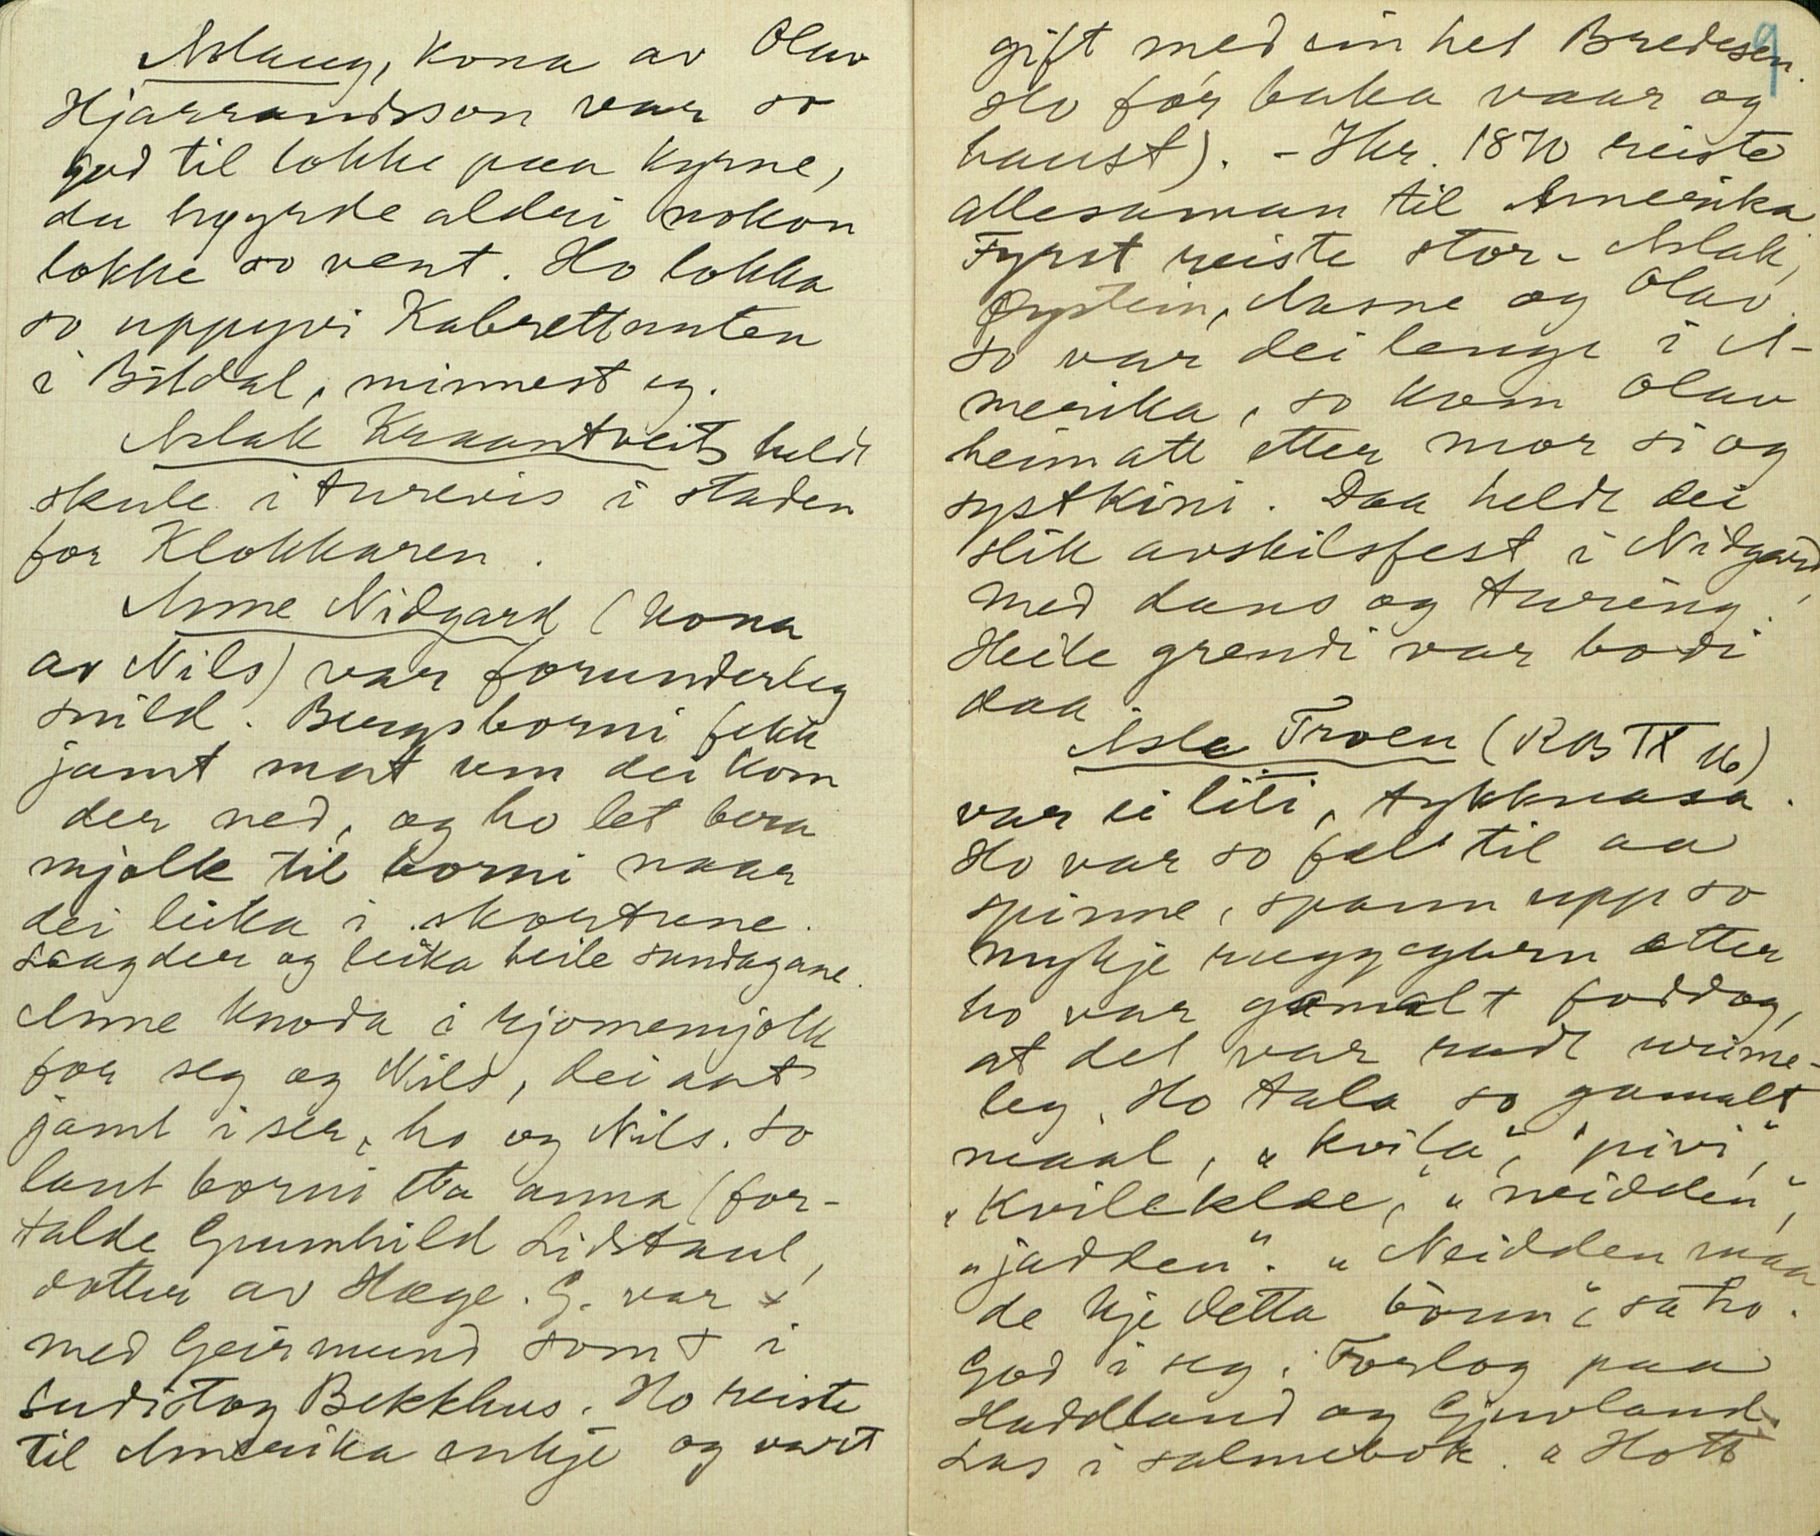 Aslaug, kona av Olav
Hjarrandsson var so
god til lokke paa kyrne,
du høyrde aldri nokon
lokke so vent. Ho lokka
so uppyvi Kabrettnuten
i Bitdal, minnest eg.
Aslak Kraantveit heldt
skule i Aurevis i staden
for Klokkaren.
Anne Nidgard (kona
av Nils) var forunderleg
snild. Bergsborni fekk
jamt mat um dei kom
der ned, og ho let bera
mjølk til borni naar
dei leika i skortune.
Laagder og leika heile sundagane.
Anne knoda i rjomemjølk
for seg og Nils, dei aat
jamt i ser, ho og Nils. So
lant borni eta anna (for-
talde Gunnhild Lidstaul,
dotter av Hæge. G. var x
med Geirmund Toms i
Sudistog Bekkhus. Ho reiste
til Amerika enkje og vart
9
gift med ein het Bredesen.
Ho fór baka vaar og
haust). - Ikr. 1870 reiste
allesaman til Amerika.
Fyrst reiste stor-Aslak,
Øystein, Aasne og Olav.
So var dei lenge i A-
merika, so kom Olav
heimatt etter mor si og
systkini. Daa heldt dei
slik avskilsfest i Nidgard
med dans og turing!
Heile grendi var bodi
daa.
Asle Troen (RB IX 16)
var ei liti, tykknasa.
Ho var so fæl til aa
spinne, spann upp so
mykje ruggegarn etter
ho var gamalt foddog,
at det var rudt urime-
leg. Ho tala so gamalt
maal, "kvila", "pivi",
"kvileklae", "neidden",
"jadden". "Neidden maa
de kje detta bonn", sa ho.
God i seg. Forlog paa
Haddland og Gjuvland.
Las i salmebok. "Hott